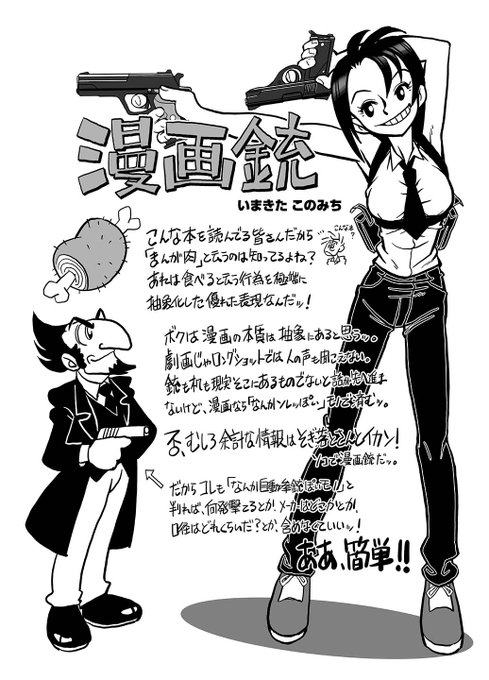 漫画銃
いまきた このみち
こんな本を読んでる皆さんだから
「まんが肉」と云うのは知ってるよね?
あれは食べると云う行為を極端に
抽象化した優れた表現なんだッ!
こんなも?
ボクは漫画の本質は抽象にあると思うッ。
劇画じゃロングショットでは人の声も聞こえない。
銃も机も現実そこにあるものでないと話が先へ進ま
ないけど、漫画なら「なんかソレっぽい」もので済むッ。
否、むしろ余計な情報はそぎ落とさんとイカン!
ソコで漫画銃だッ。
だからコレも「なんか自動拳銃ぽいモノ」と
判れば、何発撃てるとか、メーカーはどことかとか、
口径はどれくらいだ?とか、含めなくていいッ!
ああ、簡単!!